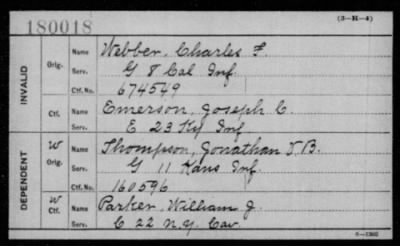 180018 (3-H-4)
INVALID
Orig. Name Webber, Charles F
Serv. G 8 Cal Inf.
Ctf.No. 674549
Ctf. Name Emerson, Joseph C.
Serv. E 23 Ky Inf
DEPENDENT
W Orig. Name Thompson, Jonathan T.B.
Serv. G 11 Kans Inf.
Ctf.No. 160596
W Ctf. Name Parker, William J.
Serv. C 22 N.Y. Cav.